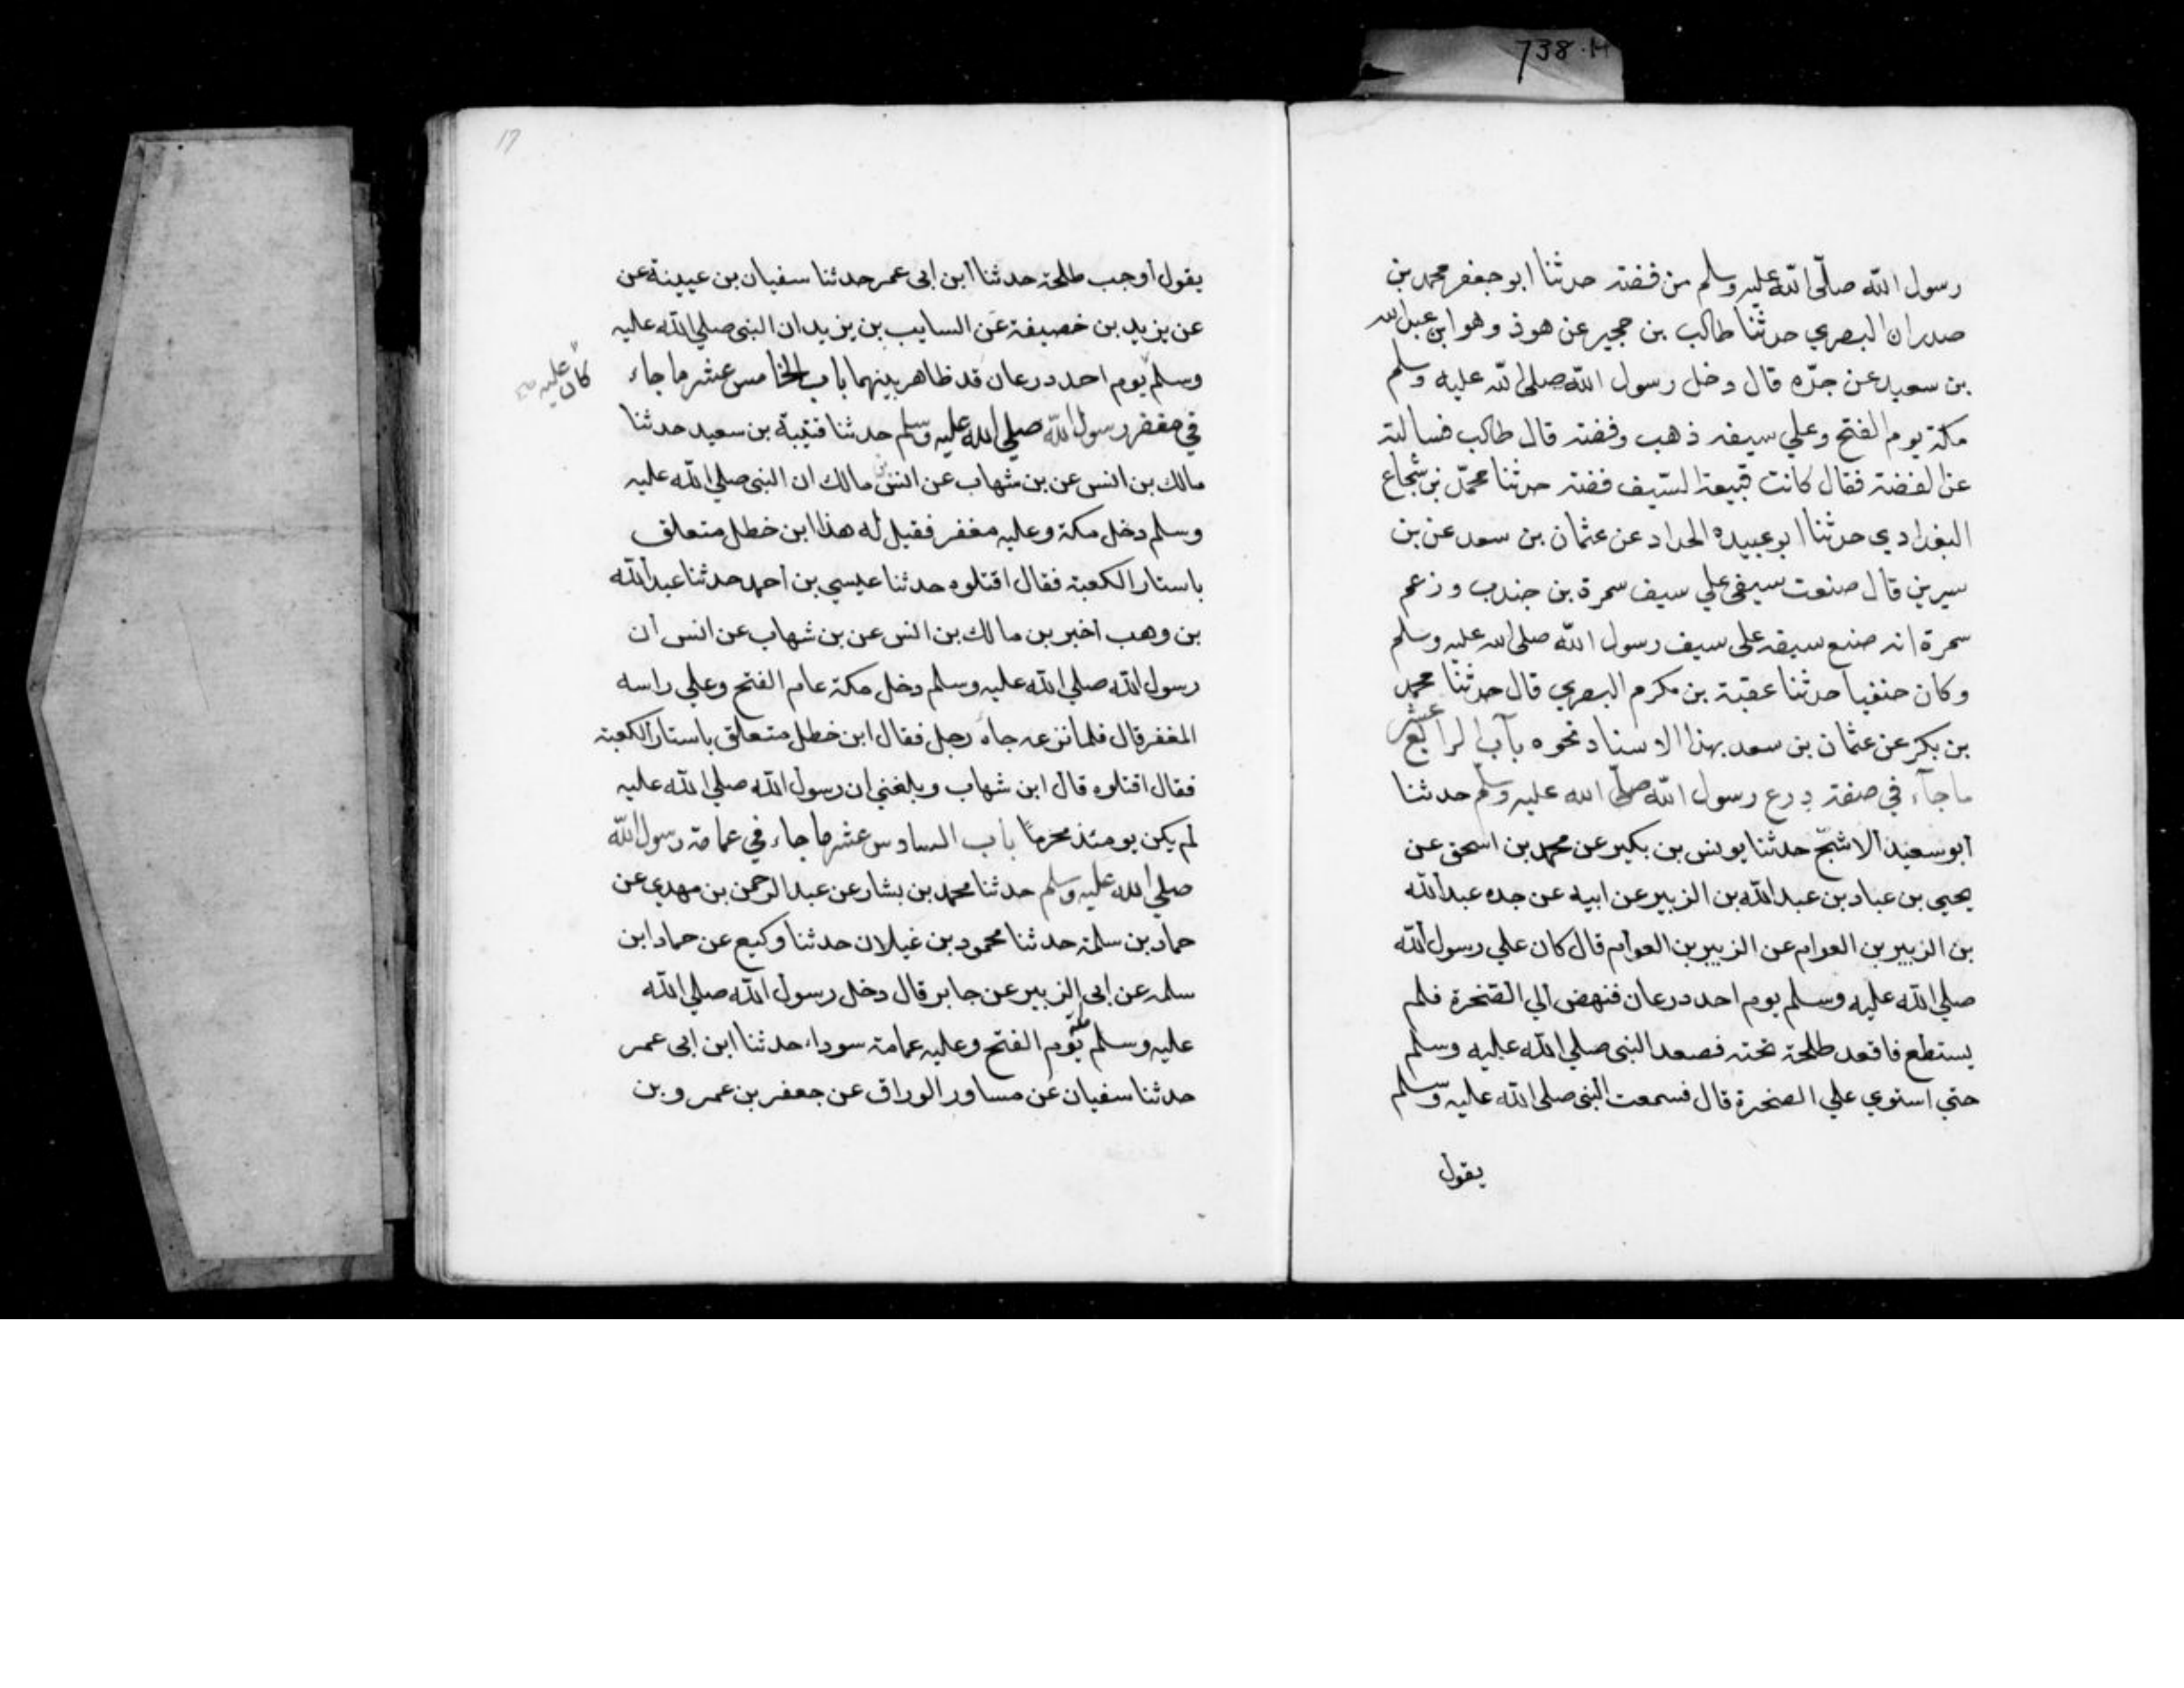 738·M
رسول الله صلّى الله عليه وسلم من فضة حدثنا ابو جعفر محمد بن
صدران البصري حدثنا طالب بن حجير عن هوذ وهو ابن عبد الله
بن سعيد عن جدّه قال دخل رسول الله صلى الله عليه وسلم
مكة يوم الفتح وعلي سيفه ذهب وفضة قال طالب فسالته
عن الفضة فقال كانت قبيعة السّيف فضة حدثنا محمّد بن شجاع
البغدادي حدثنا ابو عبيده الحداد عن عثمان بن سعد عن بن
سيرين قال صنعت سيفي علي سيف سمرة بن جندب وزعم
سمرة انه صنع سيفه على سيف رسول الله صلى الله عليه وسلم
وكان حنفيا حدثنا عقبة بن مكرم البصري قال حدثنا محمد
بن بكر عن عثمان بن سعد بهذا الاسناد نحوه باب الرابع عشر
ماجآء في صفة درع رسول الله صلّى الله عليه وسلّم حدثنا
أبو سعيد الاشجّ حدثنا يونس بن بكير عن محمد بن اسحق عن
يحيي بن عباد بن عبد الله بن الزبير عن ابيه عن جده عبد الله
بن الزبير بن العوام عن الزبير بن العوام قال كان علي رسول الله
صلي الله عليه وسلم يوم احد درعان فنهض الي الصّخرة فلم
يستطع فاقعد طلحة تحته فصعد النبي صلي الله عليه وسلم
حتي استوي علي الصخرة قال فسمعت النبي صلى الله عليه وسلم
يقول
17
يقول أوجب طلحة حدثنا ابن ابي عمر حدثنا سفيان بن عيينة عن
عن يزيد بن خصيفة عن السايب بن يزيد ان النبي صلي الله عليه
وسلم يوم احد درعان قد ظاهر بينهما باب الخامس عشر ما جاء
كان عليه
في مغفر رسول الله صلي الله عليه وسلم حدثنا قتيبة بن سعيد حدثنا
مالك بن انس عن بن شهاب عن انس بن مالك ان النبي صلي الله عليه
وسلم دخل مكة وعليه مغفر فقيل له هذا ابن خطل متعلق
باستار الكعبة فقال اقتلوه حدثنا عيسي بن أحمد حدثنا عبد الله
بن وهب أخبر بن مالك بن انس عن بن شهاب عن انس أن
رسول الله صلي الله عليه وسلم دخل مكة عام الفتح وعلي راسه
المغفر قال فلما نزعه جاه رجل فقال ابن خطل متعلق باستار الكعبة
فقال اقتلوه قال ابن شهاب وبلغني ان رسول الله صلي الله عليه
لم يكن يومئذ محرمًا باب السادس عشر ما جاء في عمامة رسول الله
صلي الله عليه وسلم حدثنا محمد بن بشار عن عبد الرحمن بن مهدي عن
حماد بن سلمة حدثنا محمود بن غيلان حدثنا وكيع عن حماد ابن
سلمه عن ابي الزبير عن جابر قال دخل رسول الله صلي الله
عليه وسلم مكة يوم الفتح وعليه عمامة سوداء حدثنا ابن ابي عمر
حدثنا سفيان عن مساور الوراق عن جعفر بن عمرو بن